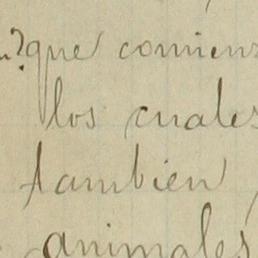 que comienz
los cuales
tambien
animales